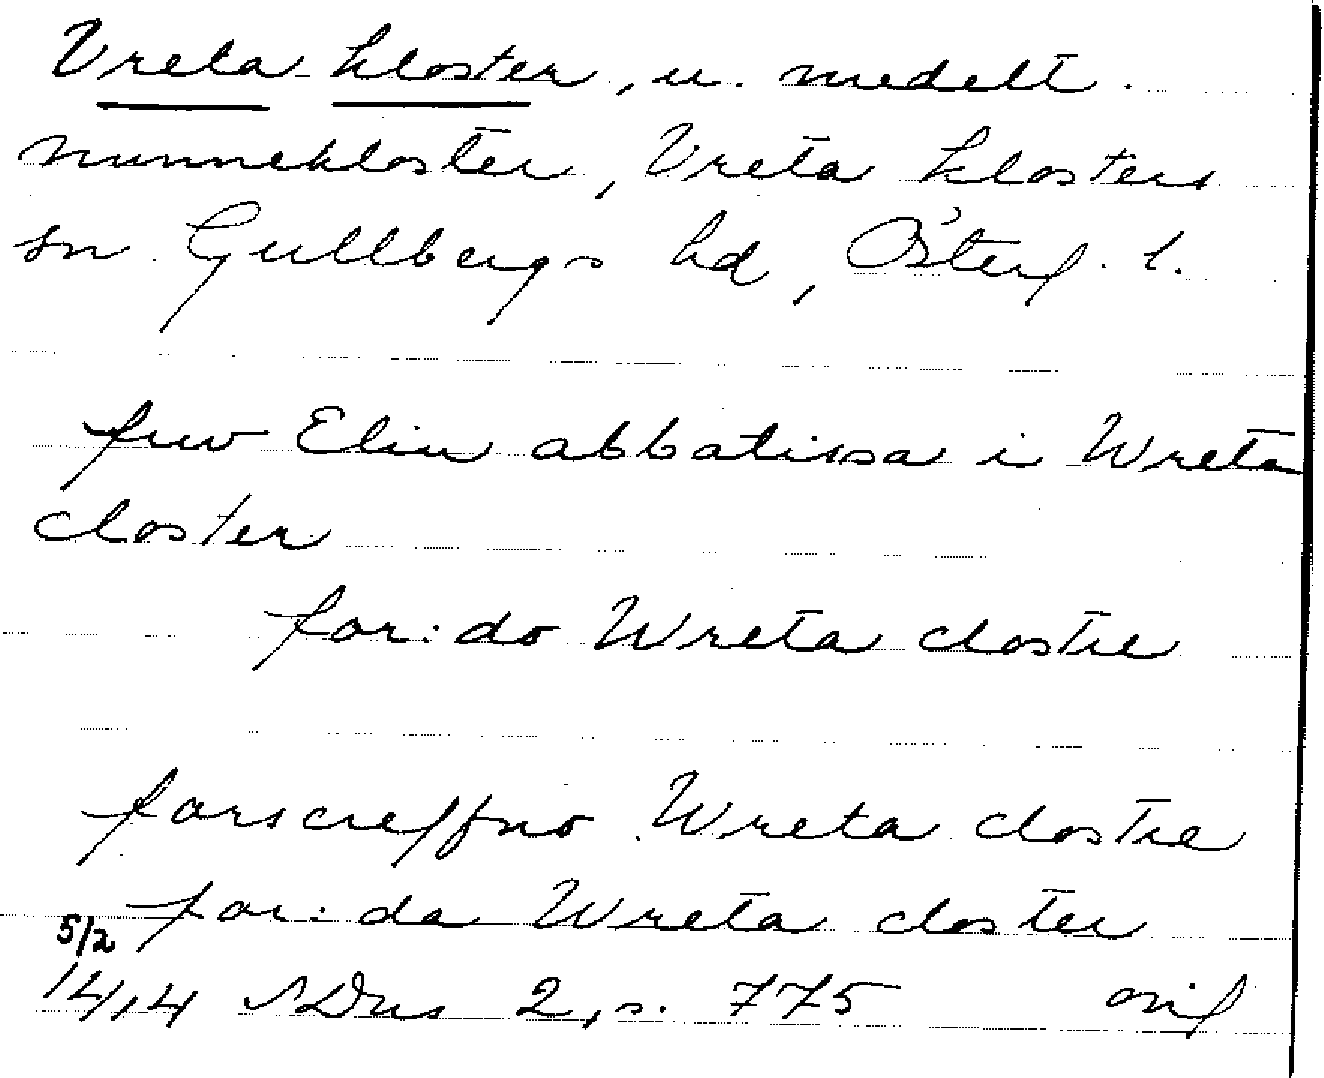 Vreta kloster, u. medelt.
nunnekloster, Vreta klosters
sn Gullbergs hd, Österg. l.
fruw Elin abbatissa i Wreta
closter
for:do Wreta clostre
forscreffno Wreta clostre
for:da Wreta closter
5/2
1414 SDns 2, s. 775 orig